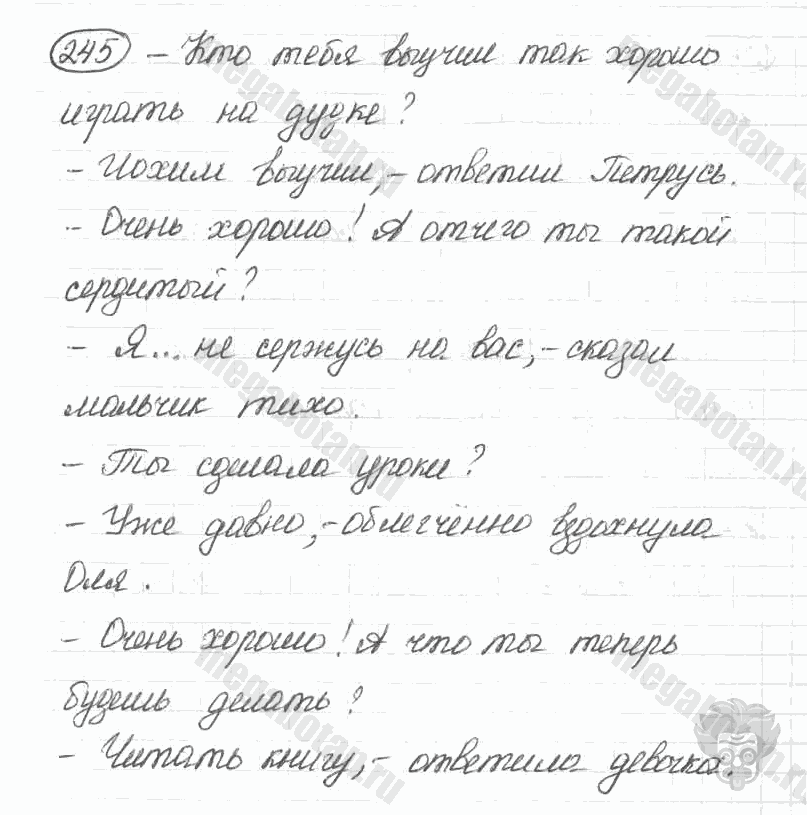 245 – Кто тебя выучил так хорошо
играть на дудке?
– Иохим выучил, – ответил Петрусь.
– Очень хорошо! А отчего ты такой
сердитый?
– Я... не сержусь на вас, – сказал
мальчик тихо.
– Ты сделала уроки?
– Уже давно, – облегчённо вздохнула
Оля.
– Очень хорошо! А что ты теперь
будешь делать?
– Читать книгу, – ответила девочка.
megabotan.ru
megabotan.ru
megabotan.ru
megabotan.ru
megabotan.ru
megabotan.ru